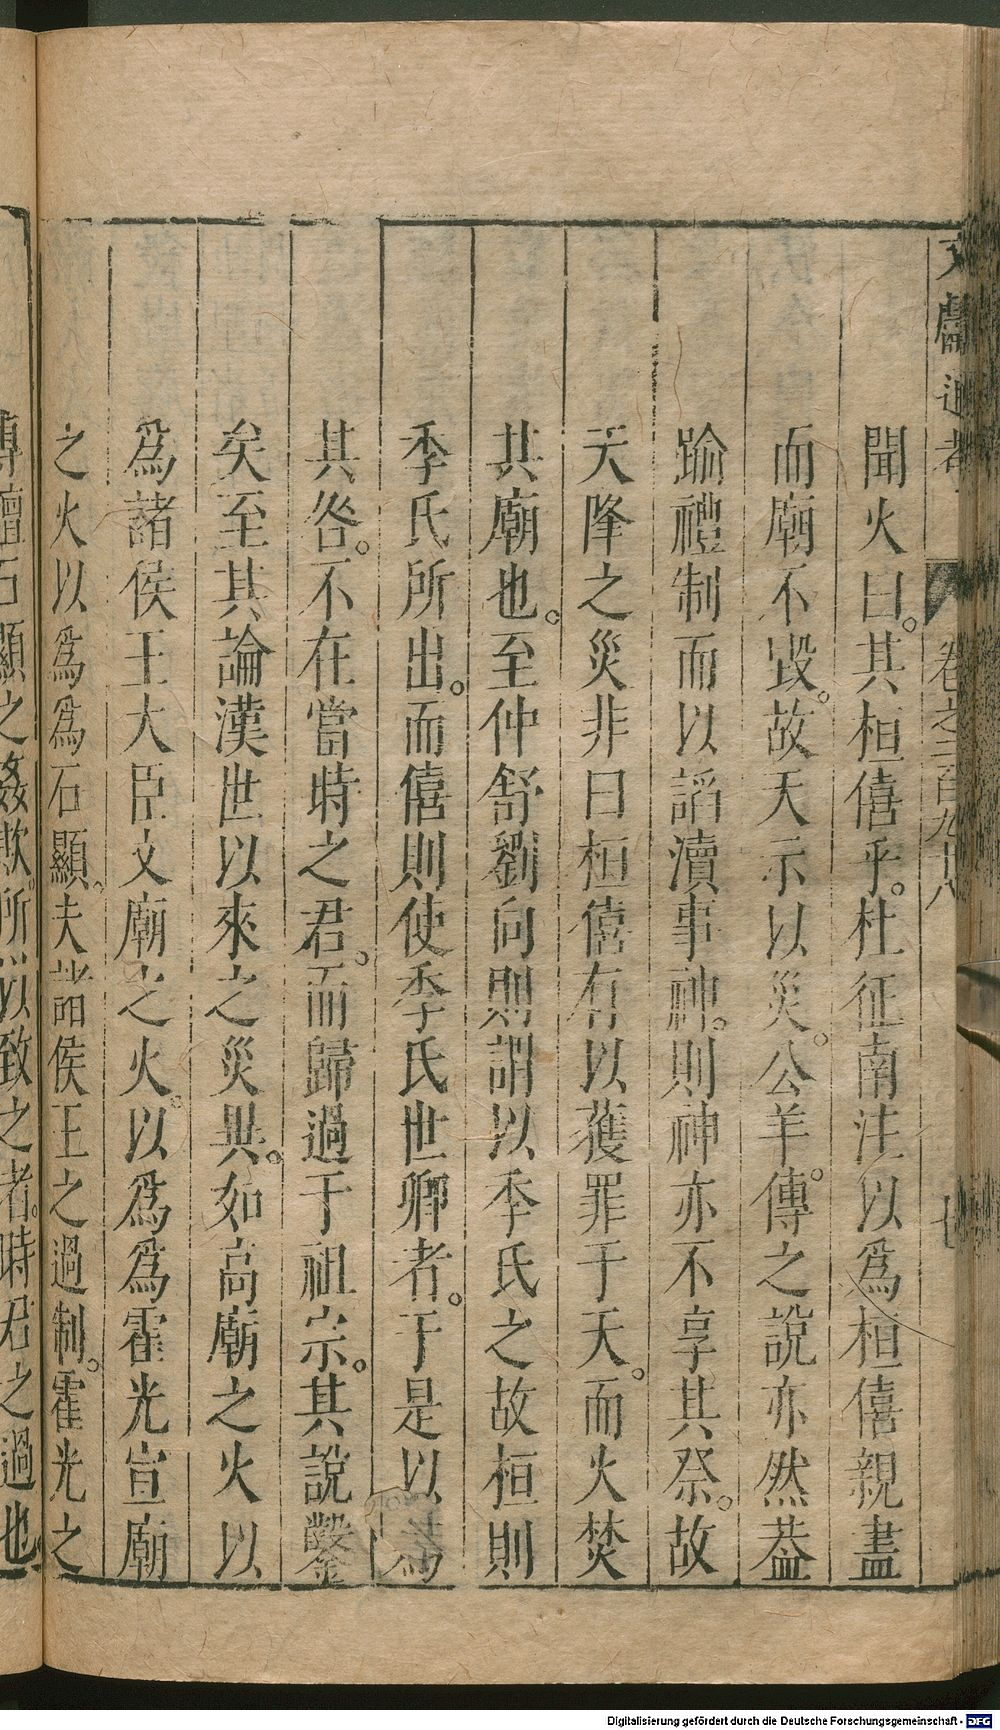 文獻通考 卷之二百九十八
聞火曰。其桓僖乎。杜征南注以爲桓僖親盡
而廟不毀。故天示以災。公羊傳之說亦然葢
踰禮制而以謟瀆事神。則神亦不享其祭。故
天降之災非曰桓僖有以獲罪于天。而火焚
其廟也。至仲舒劉向則謂以季氏之故桓則
季氏所出。而僖則使季氏世卿者。于是以爲
其咎。不在當時之君。而歸過于祖宗。其說鑿
矣至其論漢世以來之災異。如高廟之火以
爲諸侯王大臣文廟之火。以爲爲霍光宣廟
之火以爲爲石顯。夫諸侯王之過制。霍光之
專擅石顯之姦欺。所以致之者。時君之過也
Digitalisierung gefördert durch die Deutsche Forschungsgemeinschaft - DFG